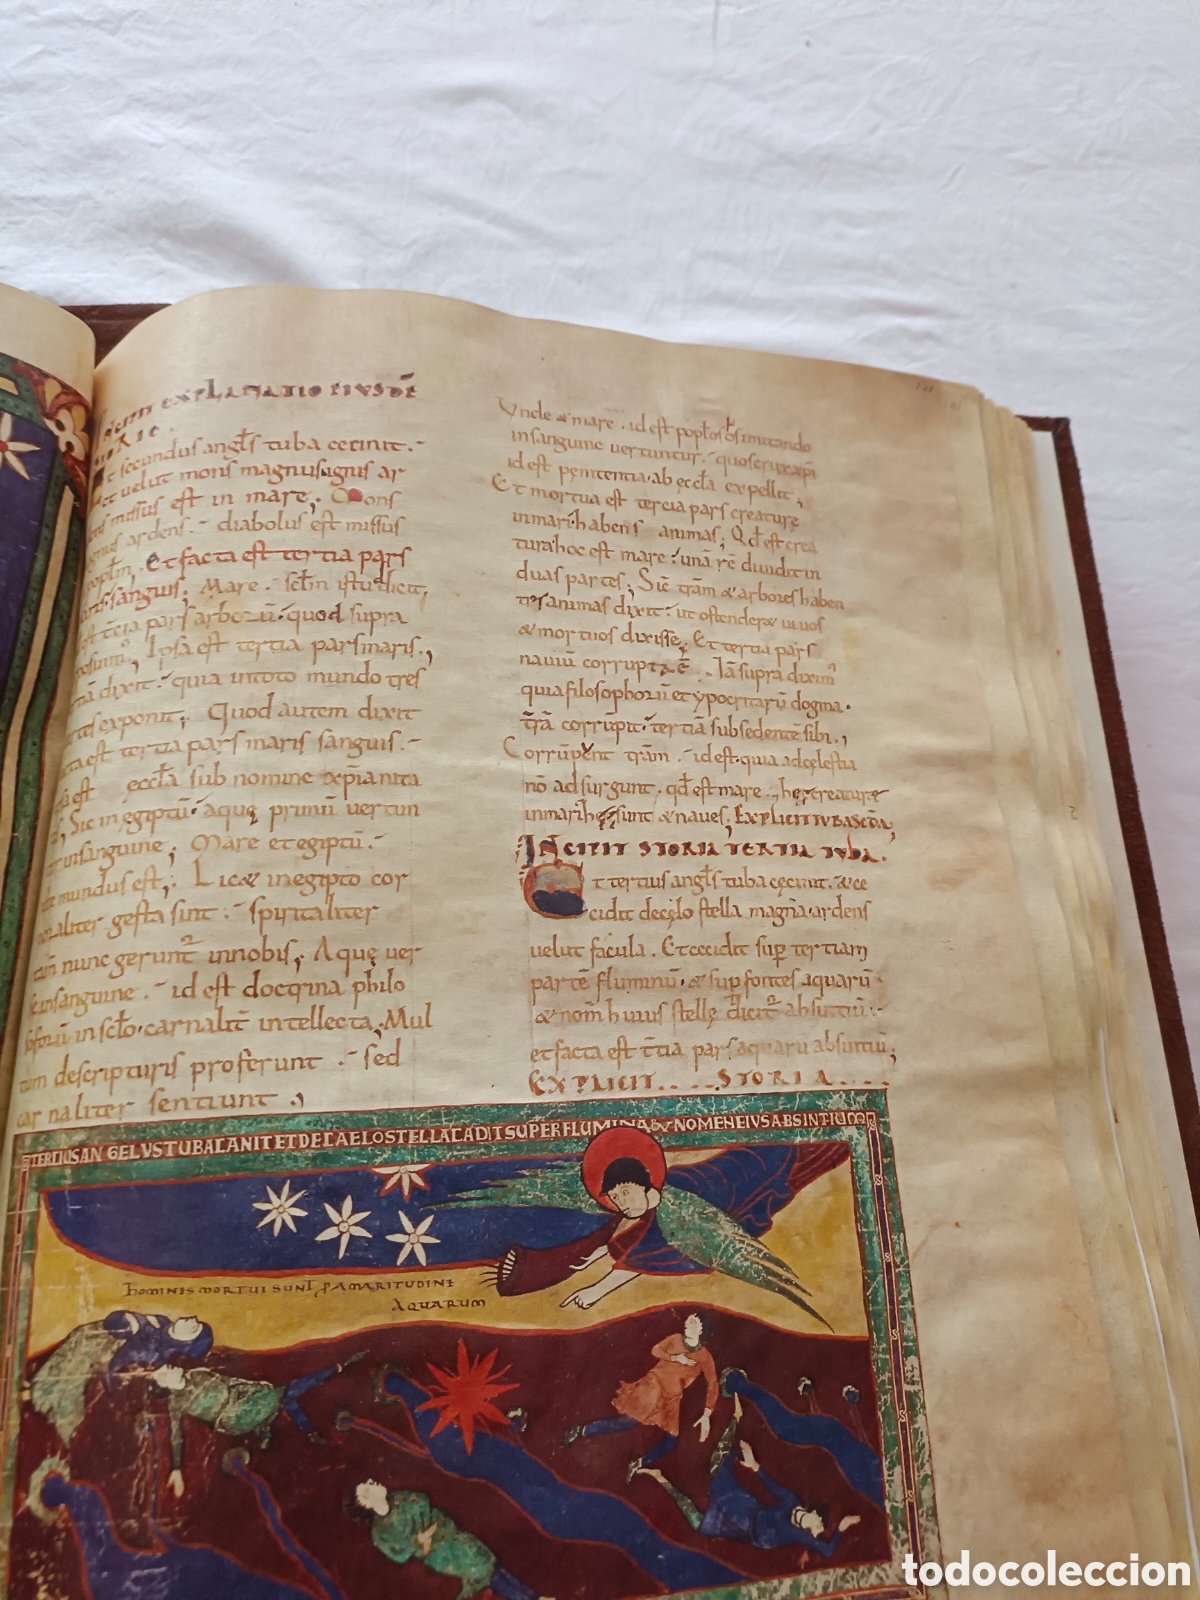 INCIPIT EXPLANATIO EIUSDĒ
secundus angl̄s tuba cecinit.
et uelut mons magnus ignis ar
dens missus est in mare; Mons
ignis ardens. diabolus est missus
popl̄m, Et facta est tertia pars
maris sanguis; Mare. sclm̄ istud dicit,
pars arborū. quod supra
Ipsa est tertia pars maris,
dixit. quia in toto mundo tres
partes exponit; Quod autem dixit
facta est tertia pars maris sanguis.
est eccl̄a sub nomine xp̄ianita
Sic in egiptū. aquę primū uertun
tur in sanguine; Mare et egiptū.
mundus est; Licet in egipto cor
poraliter gesta sint. spiritaliter
tam̄ nunc gerunt² in nobis; Aquę uer
se in sanguine. id est doctrina philo
soforū in scl̄o. carnalit̄ intellecta, Mul
tum descripturis proferunt. sed
carnaliter sentiunt,
Unde & mare. id est popl̄os
in sanguine uertuntur.
id est penitentia. ab eccl̄a expellit;
Et mortua est tercia pars creature
in mari. habens animas; Qd̄ est crea
tura hoc est mare. unā rē diuidit in
duas partes; Sic t̄ram & arbores haben
tes animas dixit. ut ostenderet uiuos
& mortuos dixisse; Et tertia pars
nauiū corrupta ē. Iā supra diximꝰ
quia filosophorū et ypocritarū dogma.
t̄rā corrūpit. tertiā subsedente sibi,
Corrūpent t̄ram. id est. quia ad cęlestia
nō adsurgunt. qd̄ est mare. he creature
in mari. he sunt & naues; EXPLICIT TUBA SCD̄A,
INCIPIT STORIA TERTIA TUBA.
Et tertius angl̄s tuba cęcinit. & ce
cidit de cęlo stella magna ardens
uelut facula. Et cecidit sup̄ tertiam
partē fluminū. & sup fontes aquarū
& nom̄ huius stellę dicit² absintiū.
et facta est t̄tia pars aquarū absintiū;
EXPLICIT.... STORIA....
TERCIUS ANGELUS TUBA CANIT ET DE CAELO STELLA CADIT SUPER FLUMINA & NOMEN EIUS ABSINTIUM
HOMINES MORTUI SUNT P AMARITUDINE
AQUARUM
todocoleccion